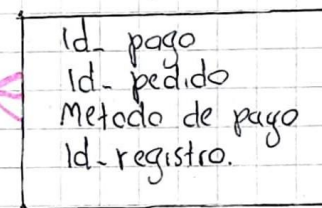 Id_ pago
Id_pedido
Metodo de pago
Id_registro.